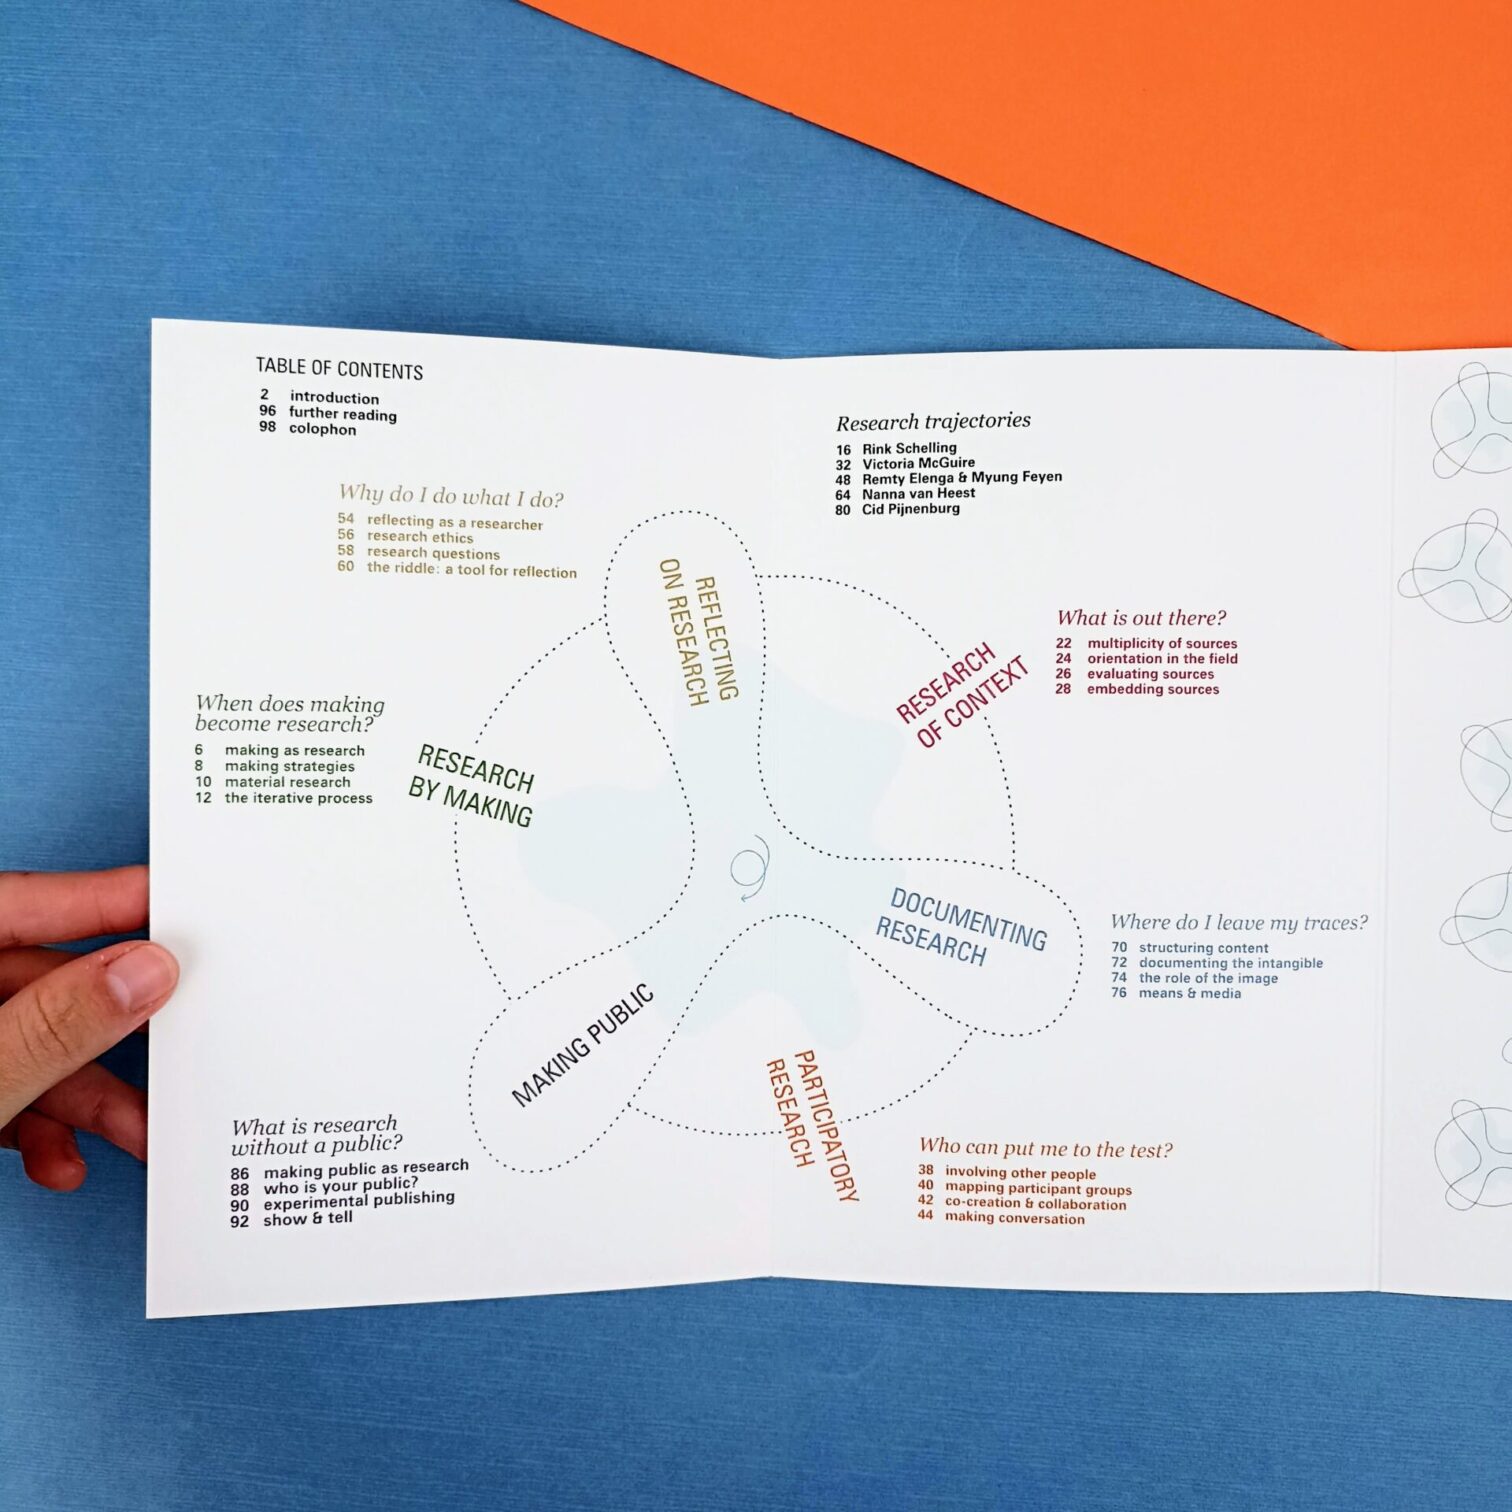 TABLE OF CONTENTS
2 introduction
96 further reading
98 colophon
Research trajectories
16 Rink Schelling
32 Victoria McGuire
48 Remty Elenga & Myung Feyen
64 Nanna van Heest
80 Cid Pijnenburg
Why do I do what I do?
54 reflecting as a researcher
56 research ethics
58 research questions
60 the riddle: a tool for reflection
REFLECTING
ON RESEARCH
What is out there?
22 multiplicity of sources
24 orientation in the field
26 evaluating sources
28 embedding sources
RESEARCH
OF CONTEXT
When does making
become research?
6 making as research
8 making strategies
10 material research
12 the iterative process
RESEARCH
BY MAKING
DOCUMENTING
RESEARCH
Where do I leave my traces?
70 structuring content
72 documenting the intangible
74 the role of the image
76 means & media
MAKING PUBLIC
PARTICIPATORY
RESEARCH
What is research
without a public?
86 making public as research
88 who is your public?
90 experimental publishing
92 show & tell
Who can put me to the test?
38 involving other people
40 mapping participant groups
42 co-creation & collaboration
44 making conversation